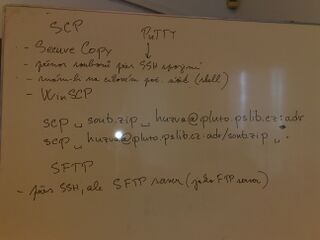 SCP PuTTY
- Secure Copy
- přenos souborů přes SSH spojení
- mám-li na cílovém poč. účet (shell)
- WinSCP
scp ␣ soub.zip ␣ huzva@pluto.pslib.cz:adr
scp ␣ huzva@pluto.pslib.cz:adr/soub.zip ␣ .
SFTP
- přes SSH, ale SFTP server (jako FTP server)